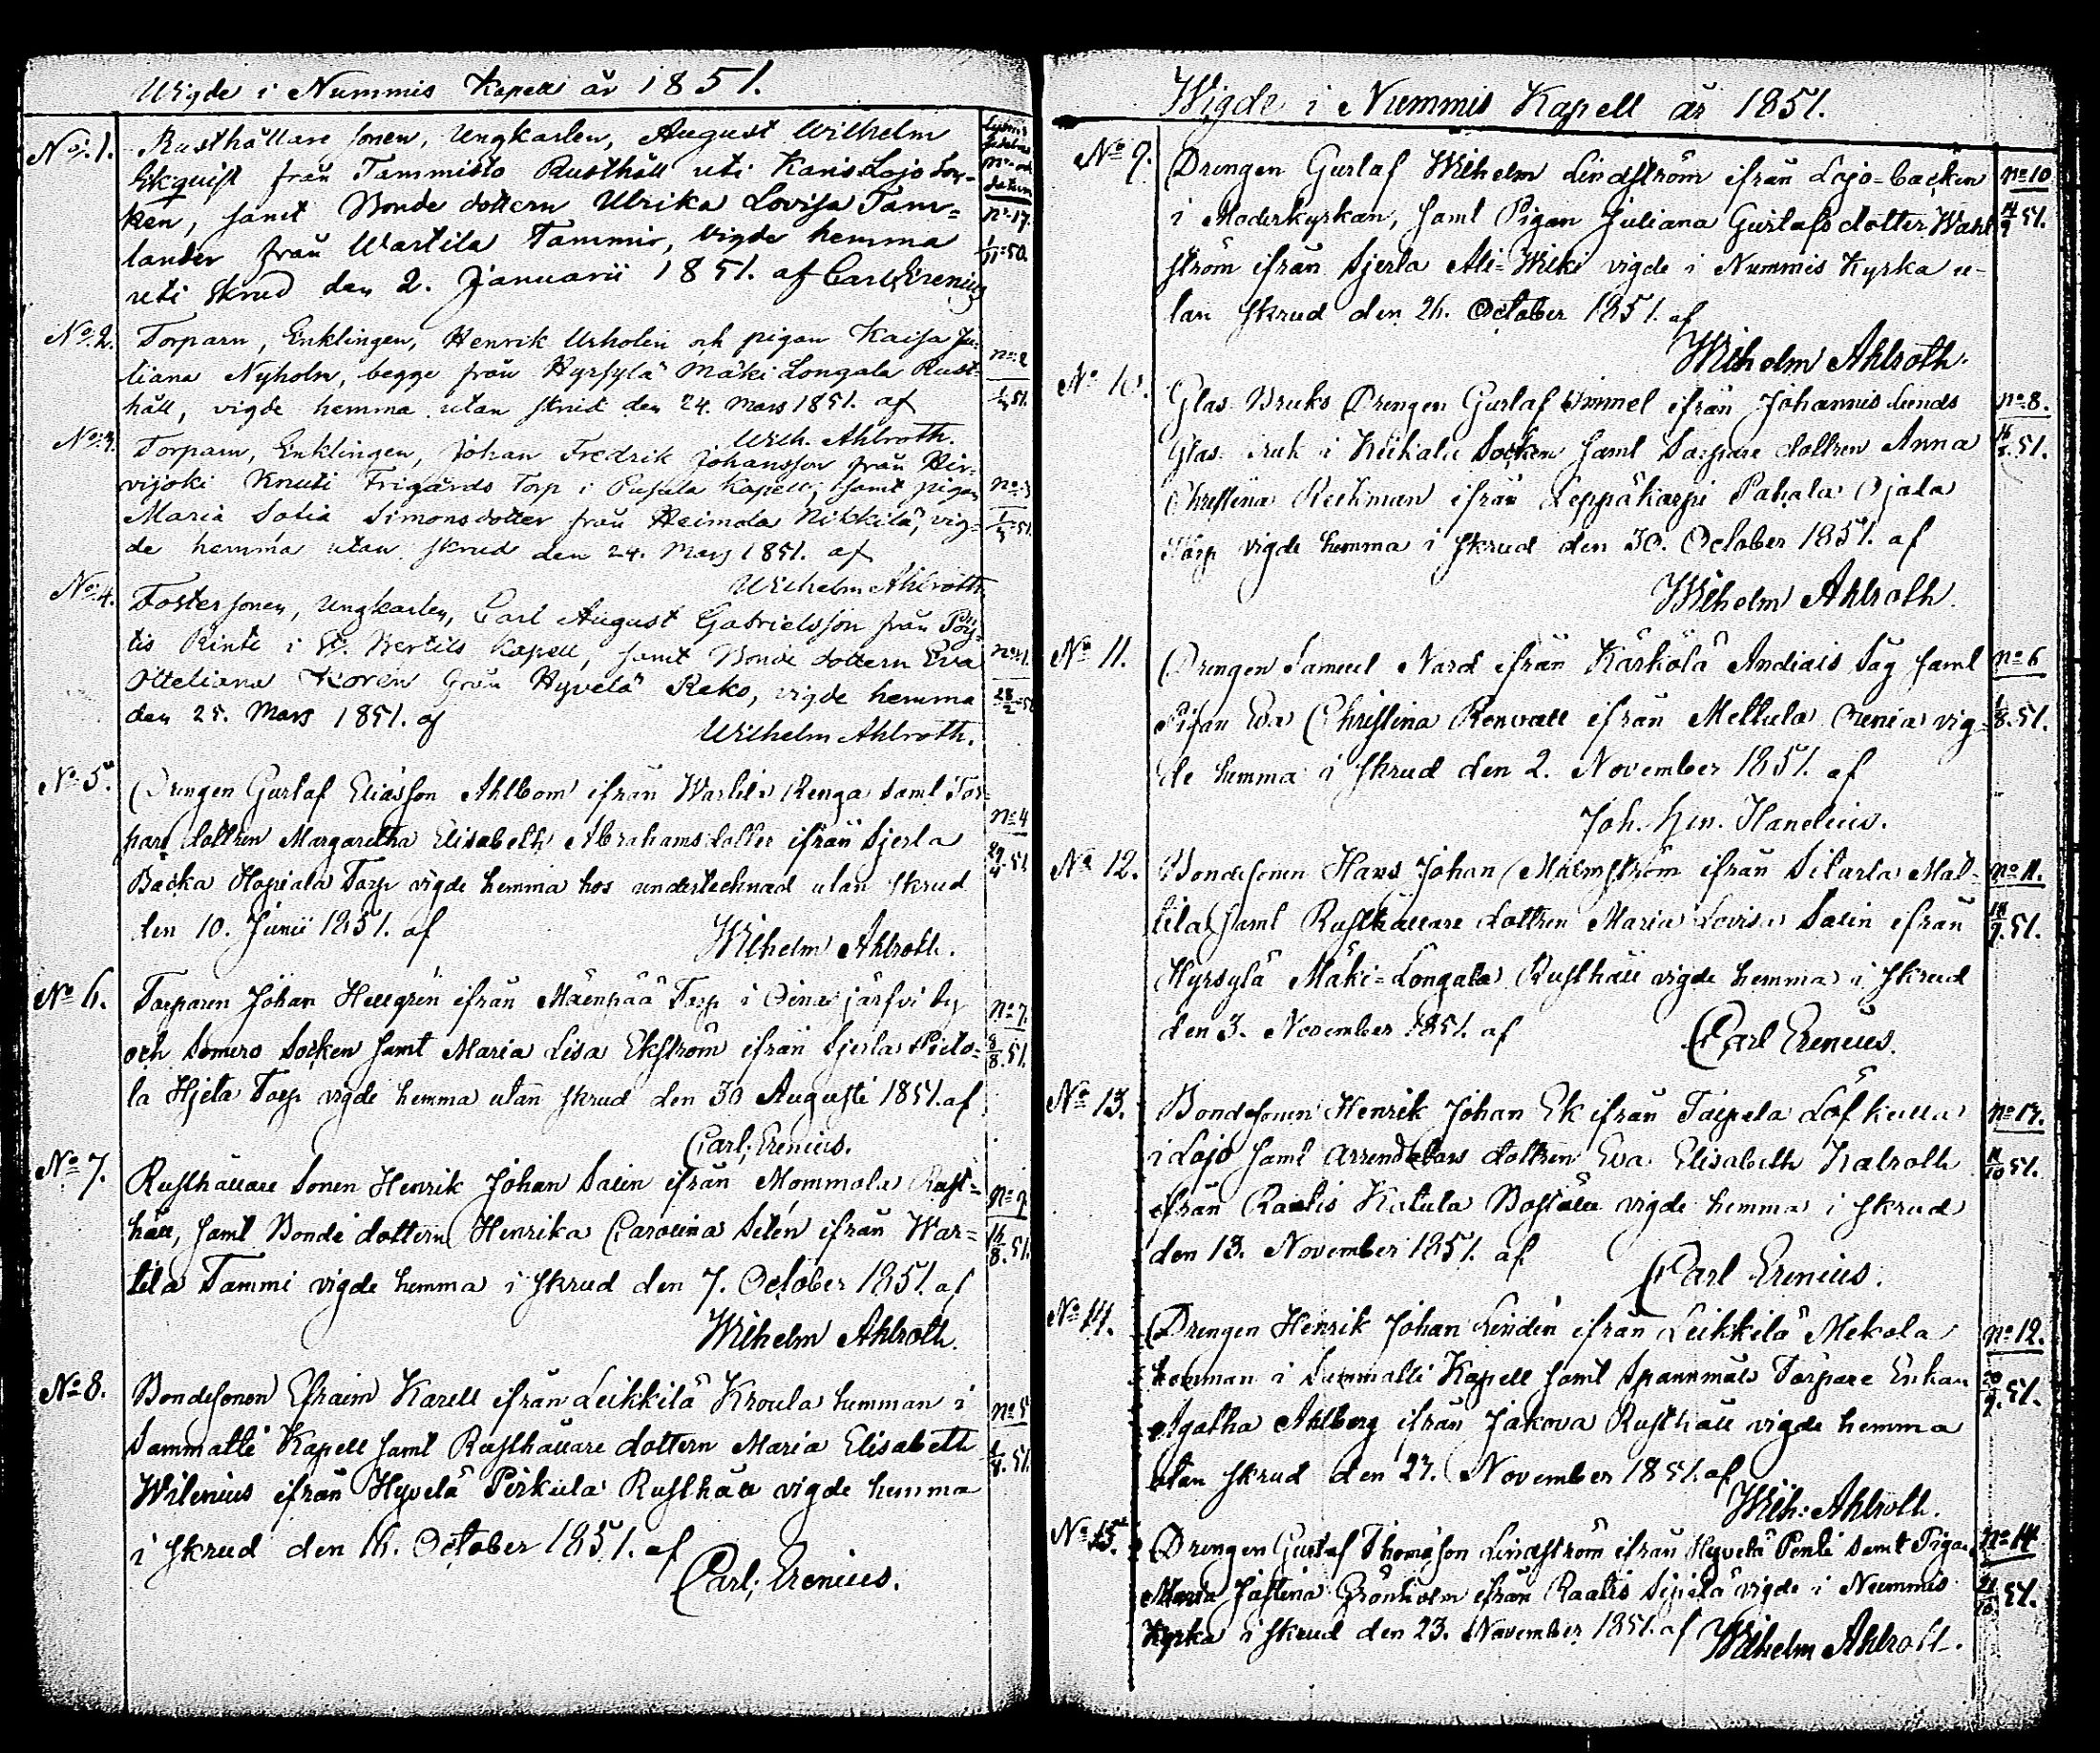 Wigde i Nummis Kapell år 1851.
No. 1. Rusthållare sonen, Ungkarlen, August Wilhelm
Ekquist från Tammisto Rusthåll uti Karis Lojo Soc-
ken, samt Bonde dottern Ulrika Lovisa Tam-
lander från Wartila Tammi, vigde hemma
uti skrud den 2. Januarii 1851. af Carl; Erenius
no 17.
1/11 50.
No. 2. Torparn, Enklingen, Henrik Urholin och pigan Kaisa Ju-
liana Nyholm, begge från Hyrsylä Mäki Longala Rust-
håll, vigde hemma utan skrud den 24. Mars 1851. af
Wilh. Ahlroth.
no 2
51.
No. 3. Torparn, Enklingen, Johan Fredrik Johansson från Hir-
vijoki Knuti Frigårds Torp i Pusula Kapell, samt pigan
Maria Sofia Simonsdotter från Heimola Nikkilä, vig-
de hemma utan skrud den 24. Mars 1851. af
Wilhelm Ahlroth
no 3
51.
No. 4. Fostersonen, Ungkarlen, Carl August Gabrielsson från Pöy-
tis Rinte i St. Bertils Kapell, samt Bonde dottern Eva
Otteliana Koren från Hyvelä Reko, vigde hemma
den 25. Mars 1851. af
Wilhelm Ahlroth.
no 1.
28/2 51
No 5. Drengen Gustaf Eliasson Ahlbom ifrån Wartila Renga samt Tor-
pare dottren Margaretha Elisabeth Abrahamsdotter ifrån Sjerla
Backa Hopiala Torp vigde hemma hos undertecknad utan skrud
den 10. Junii 1851. af
Wilhelm Ahlroth.
no 4
29/4 51
No 6. Torparen Johan Hellgrén ifrån Mäenpää Torp i Oinasjärfvi by
och Somero Socken samt Maria Lisa Ekström ifrån Sjerla Pieto-
la Hjeta Torp vigde hemma utan skrud den 30 Augusti 1851. af
Carl; Erenius.
no 7.
8/8. 51.
No 7. Rusthållare Sonen Henrik Johan Salin ifrån Mommola Rust-
håll, samt Bonde dottern Henrika Carolina Selén ifrån War-
tila Tammi vigde hemma i skrud den 7. October 1851. af
Wilhelm Ahlroth.
no 9
16/8. 51.
No 8. Bondesonen Efraim Karell ifrån Leikkilä Kroula hemman i
Sammatti Kapell samt Rusthållare dottern Maria Elisabeth
Wilenius ifrån Hyvelä Pirkula Rusthåll vigde hemma
i skrud den 16. October 1851. af
Carl; Erenius.
no 5
51.
Wigde i Nummis Kapell år 1851.
No 9. Drengen Gustaf Wilhelm Lindström ifrån Lojo-backen
i Moderkyrkan, samt Pigan Juliana Gustafsdotter Wahl
ström ifrån Sjerla Ali-Wilki vigde i Nummis Kyrka u-
tan skrud den 26. October 1851. af
Wilhelm Ahlroth.
no 10
14/9 51.
No 10. Glas Bruks Drengen Gustaf Immel ifrån Johannislunds
Glas bruk i Kiikala Socken samt Torpare dottren Anna
Christina Reckman ifrån Leppäkorpi Pahala Ojala
Torp vigde hemma i skrud den 30. October 1851. af
Wilhelm Ahlroth.
no 8.
51.
No 11. Drengen Samuel Nard ifrån Kärkölä Andiais Såg samt
Pigan Eva Christina Renvall ifrån Mettula Crenia vig-
de hemma i skrud den 2. November 1851. af
Joh. Hen. Hanelius.
no 6
1/8. 51.
No 12. Bondesonen Hans Johan Malmström ifrån Sitarla Mal-
tila samt Rusthållare dottren Maria Lovisa Salin ifrån
Hyrsylä Mäki-Longala Rusthåll vigde hemma i skrud
den 3. November 1851. af
Carl Erenius.
no 11.
18/9. 51.
No 13. Bondesonen Henrik Johan Ek ifrån Torpela Löfkulla
i Lojo samt arrendators dottren Eva Elisabeth Kalroth
ifrån Raatis Katula Boställe vigde hemma i skrud
den 13. November 1851. af
Carl Erenius.
no 13.
11/10 51.
No 14. Drengen Henrik Johan Lindén ifrån Leikkilä Mekola
hemman i Sammatti Kapell samt Spannmåls Torpare Enkan
Agatha Ahlberg ifrån Jakova Rusthåll vigde hemma
utan skrud den 27. November 1851. af
Wilh. Ahlroth.
no 12.
20/9. 51.
No 15. Drengen Gustaf Thomasson Lindström ifrån Hyvelä Penti samt Pigan
Maria Justina Grönholm ifrån Raatis Sipilä vigde i Nummis
Kyrka i skrud den 23. November 1851. af Wilhelm Ahlroth.
no 14
21/10 51.